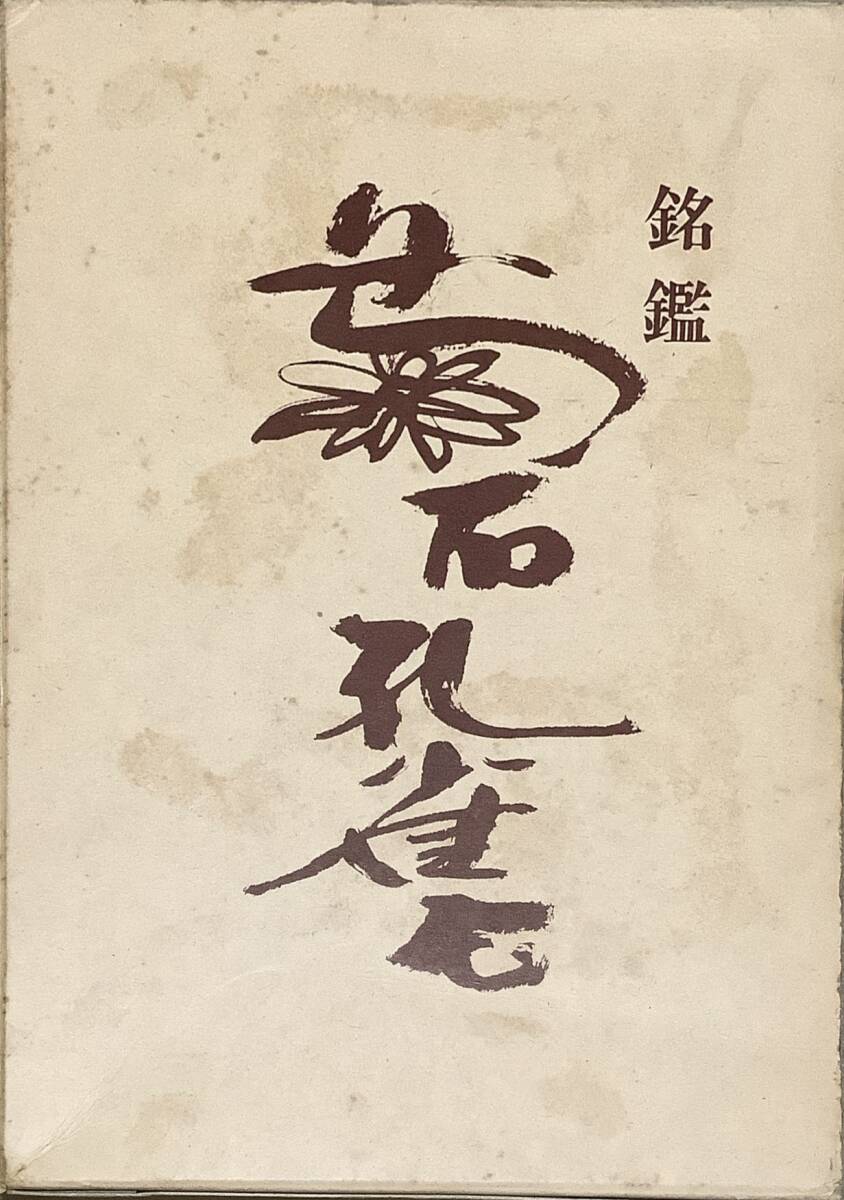 銘鑑
菊石孔雀石